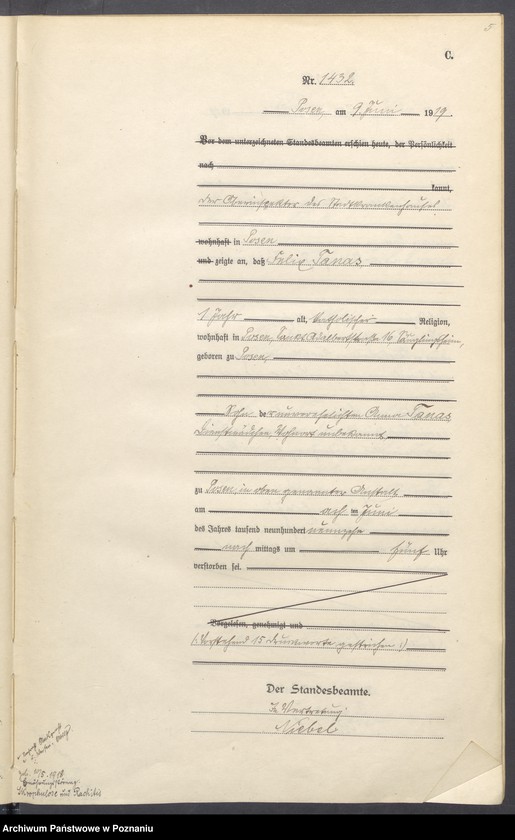 5
C.
Nr. 1432.
Posen, am 9. Juni 1919.
Vor dem unterzeichneten Standesbeamten erschien heute, der Persönlichkeit
nach
kannt,
der Oberinspektor des Stadtkrankenhauses
wohnhaft in Posen
und zeigte an, daß Felix Tanas
1 Jahr alt, katholischer Religion,
wohnhaft in Posen, Sankt Adalbertstraße 16, Säuglingsheim,
geboren zu Posen,
Sohn der unverehelichten Anna Tanas,
Dienstmädchen, Wohnort unbekannt
zu Posen, in oben genannter Anstalt
am acht im Juni
des Jahres tausend neunhundert neunzehn
nach mittags um fünf Uhr
verstorben sei.
Vorgelesen, genehmigt und
(: Vorstehend 15 Druckworte gestrichen :)
Der Standesbeamte.
In Vertretung
Niebel
geb. 1918
Ernährungsstörung
Skrophulose und Rachitis
Archiwum Państwowe w Poznaniu